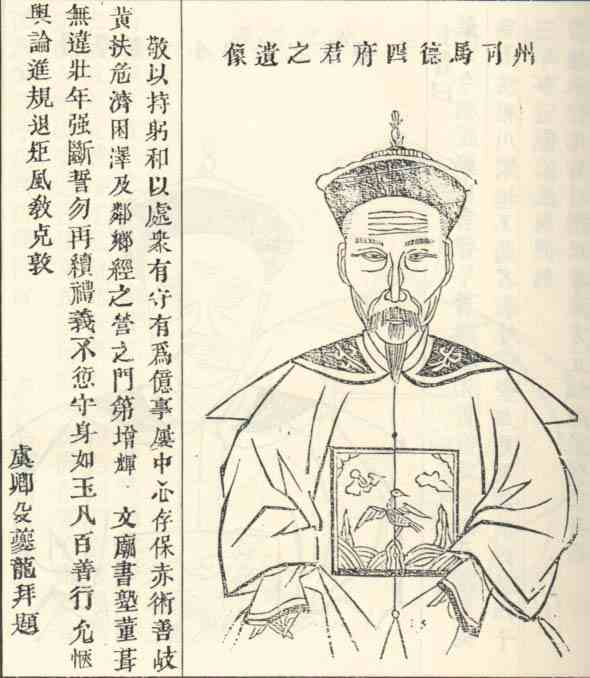 州司馬德四府君之遺像
敬以持躬和以處衆有守有爲億事屢中心存保赤術善歧
黃扶危濟困澤及鄰鄉經之營之門第增輝 文廟書塾董葺
無違壯年强斷誓勿再續禮義不愆守身如玉凡百善行允愜
輿論進規退矩風敎克敦
虞卿殳夔龍拜題